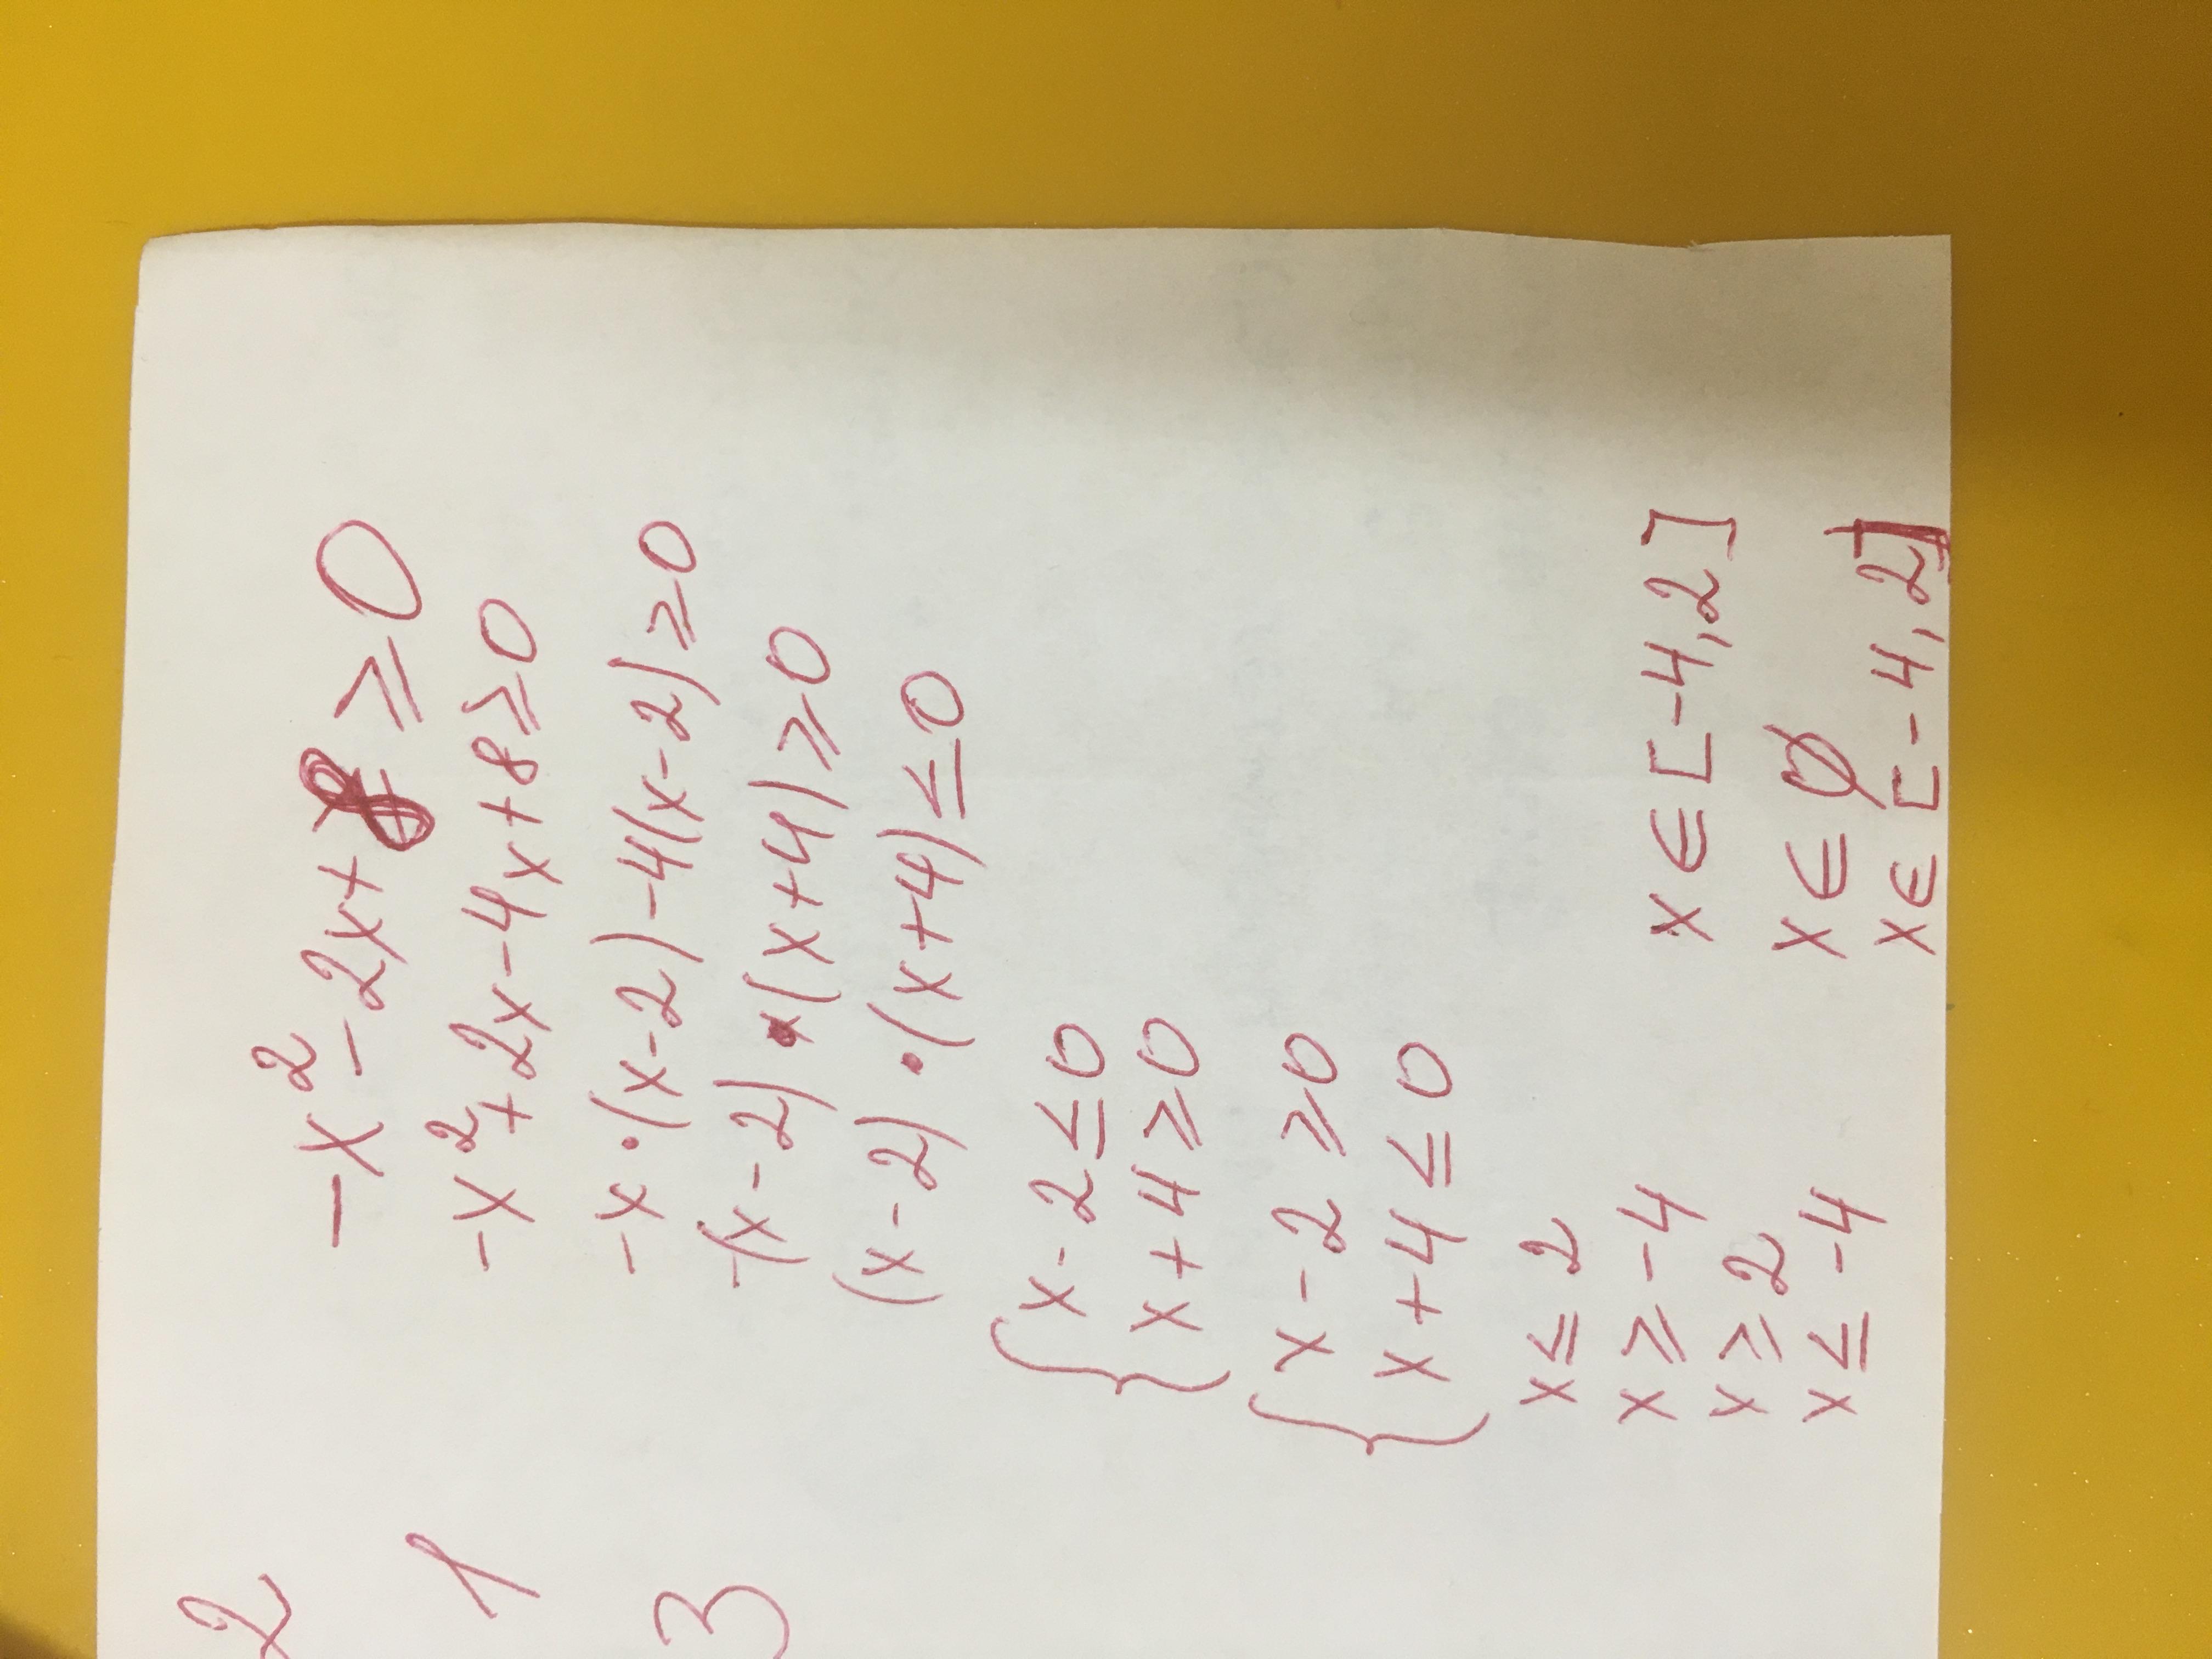 2
1
3
-x²-2x+8≥0
-x²+2x-4x+8≥0
-x·(x-2)-4(x-2)≥0
-(x-2)·(x+4)≥0
(x-2)·(x+4)≤0
{x-2≤0
x+4≥0
{x-2≥0
x+4≤0
x≤2
x≥-4 x∈[-4,2]
x≥2
x≤-4 x∈∅
x∈[-4,2]